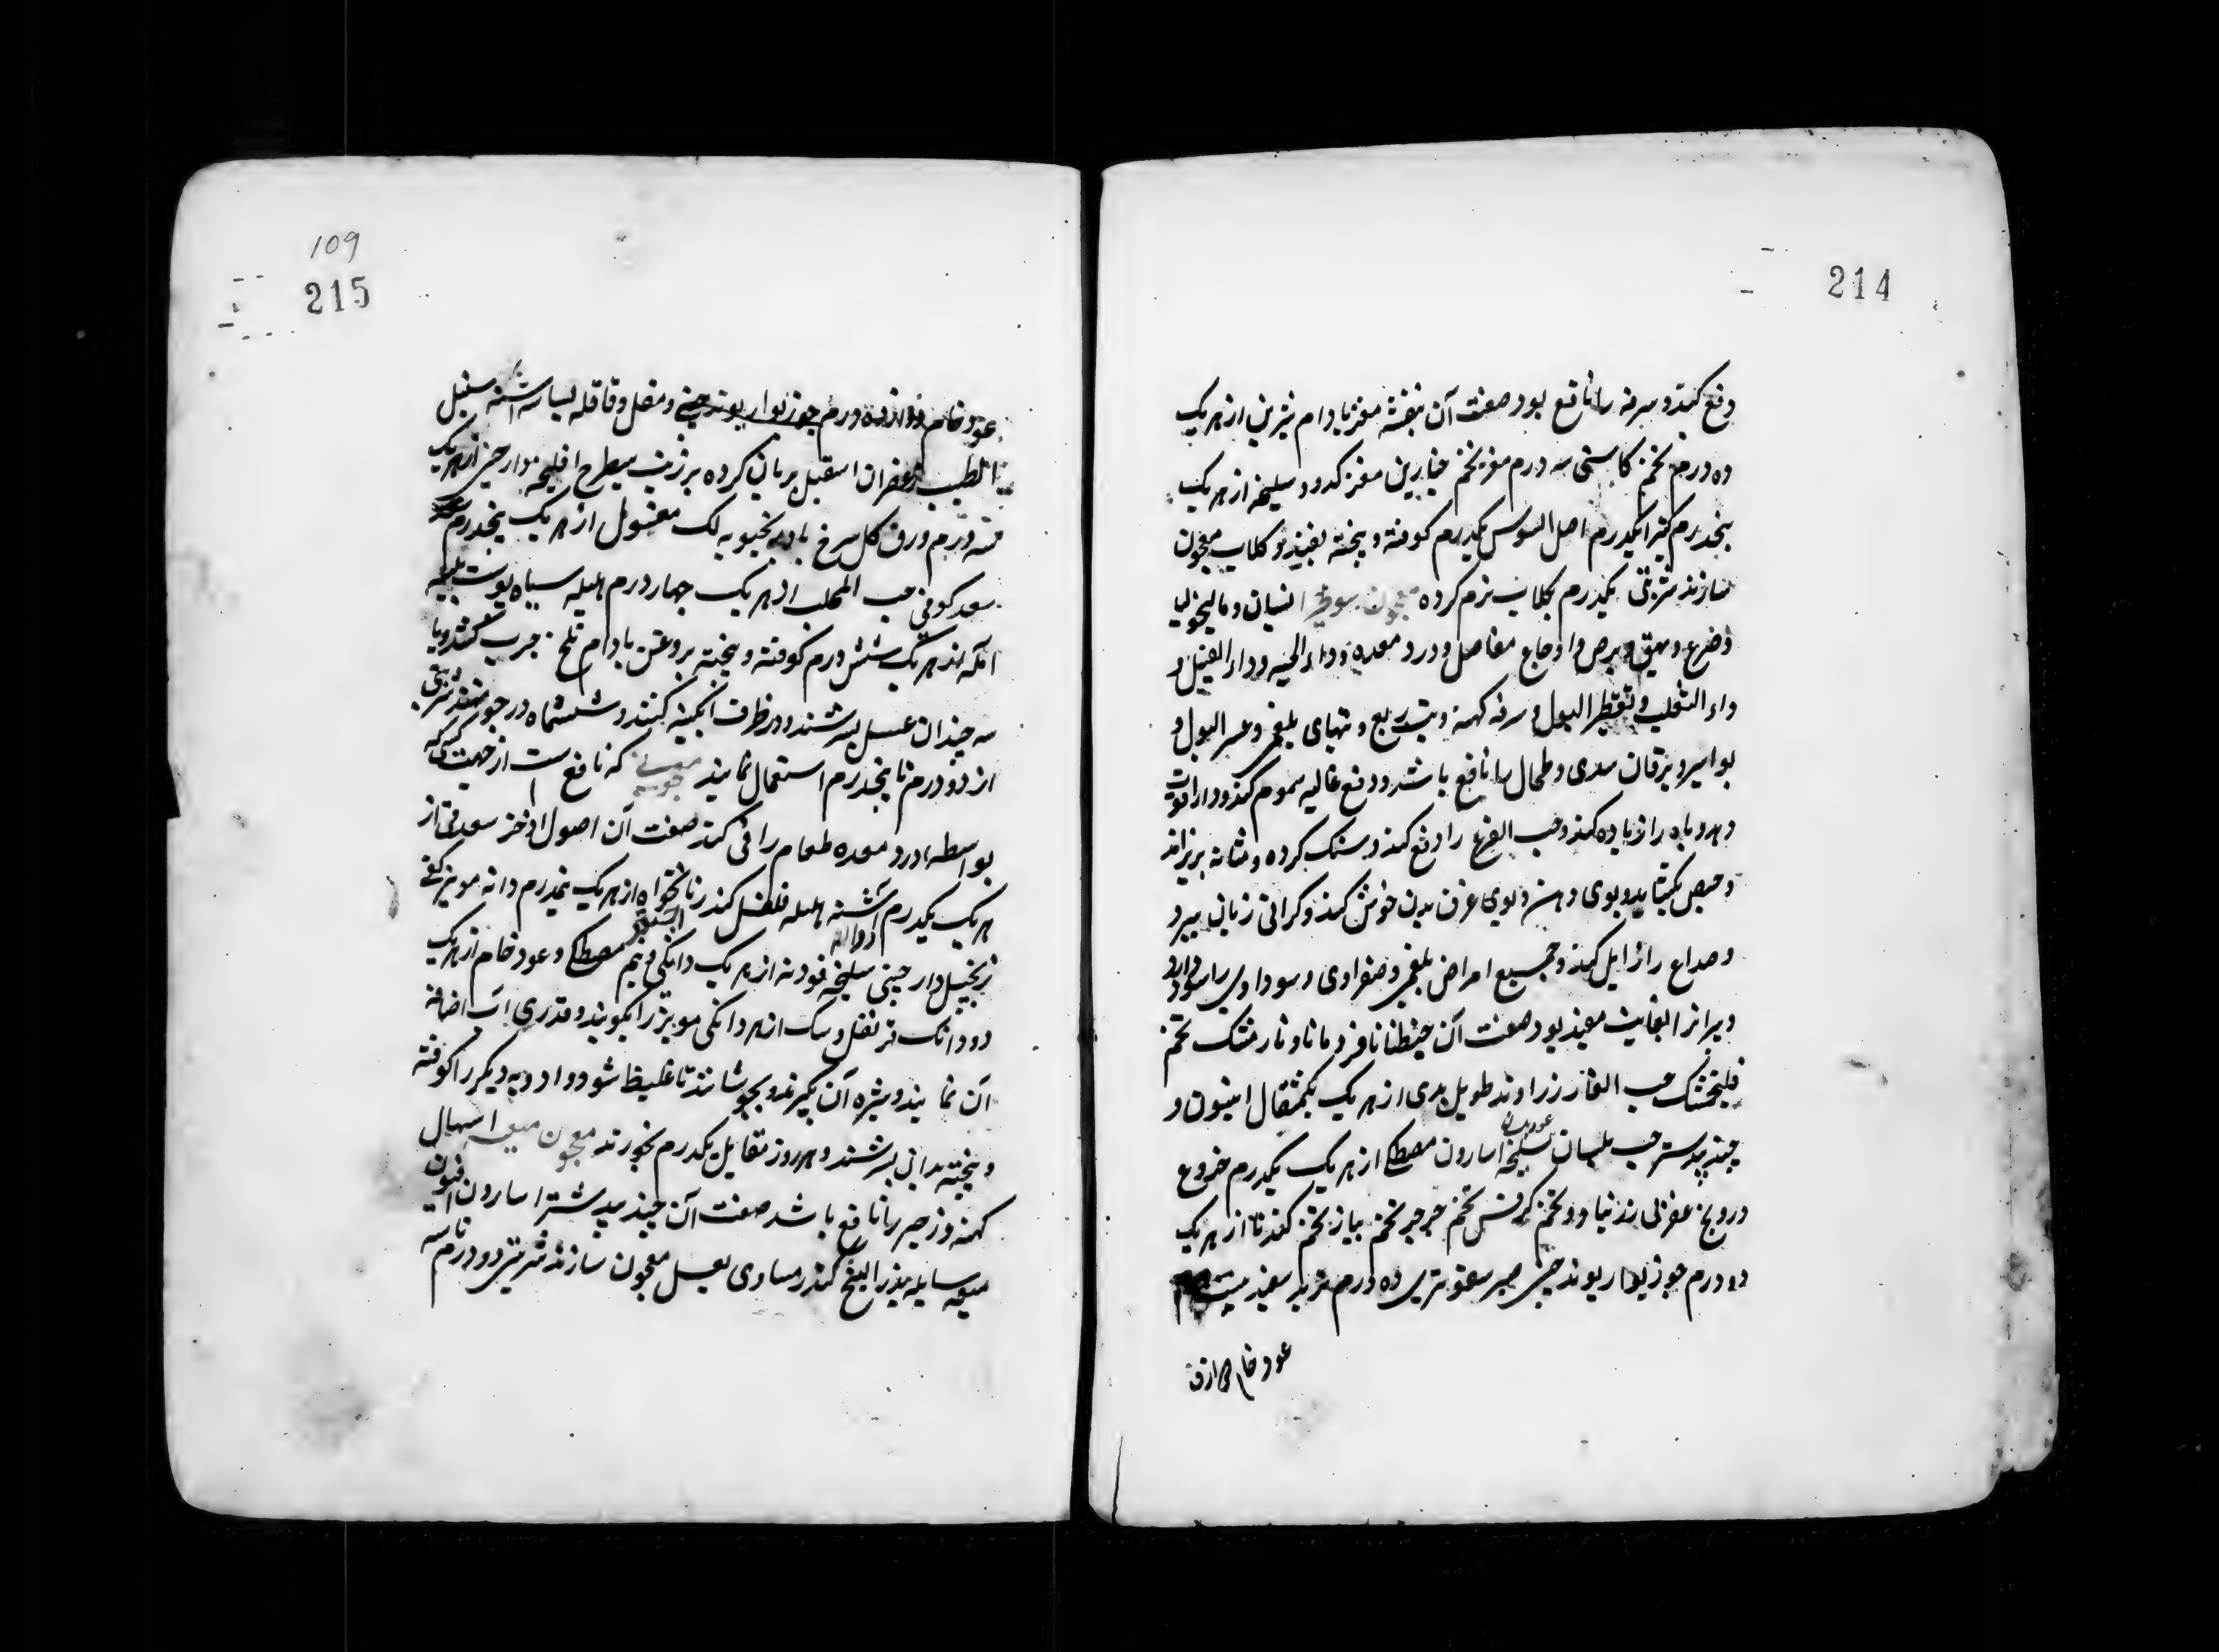 214
دفع کند و سرفه را نافع بود صفت آن بنفشه مغز بادام شیرین از هر یک
ده درم تخم کاسنی سه درم مغز تخم خیارین مغز کدو و سلیخه از هر یک
پنجدرم کتیرا یکدرم اصل السوس یکدرم کوفته و پخته بقند و کلاب معجون
سازند شربتی یکدرم بکلاب نرم کرده معجون سوطیرا نسیان و مالیخولیا
و ضرع و بهق و برص و اوجاع مفاصل و درد معده و داء الحیه و داء الفیل و
داء الثعلب و تقطیر البول و سرفه کهنه و تب ربع و تبهای بلغمی و عسر البول و
بواسیر و یرقان سدی و طحال را نافع باشد و دفع غالیه سموم کند و
و باه را زیاده کند و حب القرع را دفع کند و سنک کرده و مثانه بریزاند
و حیض بکشاید و بوی دهن و بوی عرق بدن خوش کند و کرانی زبان ببرد
و صداع را زایل کند و جمیع امراض بلغمی و صفراوی و سوداوی را سود دارد
و پیرانرا بغایت مفید بود صفت آن جنطیانا قردمانا و نارمشک تخم
فلنجمشک حب الغار زراوند طویل از هر یک یکمثقال افیون و
جندبیدستر حب بلسان عود بلسان سلیخه اسارون مصطکی از هر یک یکدرم
درونج عقربی زرنباد و تخم کرفس تخم جرجیر تخم پیاز تخم کندنا از هر یک
دو درم جوزبوا ریوند چینی صبر سقوتری ده درم تربد سفید
عود خام
109
215
عود خام دوازده درم جوزبوا ریوند چینی و مقل و قاقله بسباسه اشنه سنبل
الطیب زعفران اسقیل بریان کرده بزیت از هر یک
سه درم ورق کل سرخ بادرنجبویه لک مغسول از هر یک پنجدرم
سعد کوفی حب المحلب از هر یک چهار درم هلیله سیاه پوست بلیله
آمله از هر یک شش درم کوفته و پخته بروغن بادام تلخ چرب کنند و با
سه چندان عسل بسرشند و در ظرف آبکینه کنند و ششماه در جو نهند شربتی
از دو درم تا پنجدرم استعمال نمایند معجونی که نافع است از جهت کسی که
بواسطه درد معده طعام را قی کند صفت آن اصول اذخر سعد از
هر یک یکدرم اشنه هلیله فلفل کندر نانخواه از هر یک نیمدرم دانه مویز
زنجبیل دارچینی سلیخه فودنه از هر یک دانکی و نیم مصطکی و عود خام از هر یک
دو دانک قرنفل و سک از هر دانکی مویز را بکوبند و قدری آب اضافه
آن نمایند و شیره آن بگیرند و بجوشانند تا غلیظ شود و ادویه دیکر را کوفته
و پخته بدان بسرشند و هر روز مقابل یکدرم بخورند معجون میعه اسهال
کهنه و زحیر را نافع باشد صفت آن جندبیدستر اسارون افیون
میعه سایله بذر البنج کندر مساوی بعسل معجون سازند شربتی دو درم تا سه